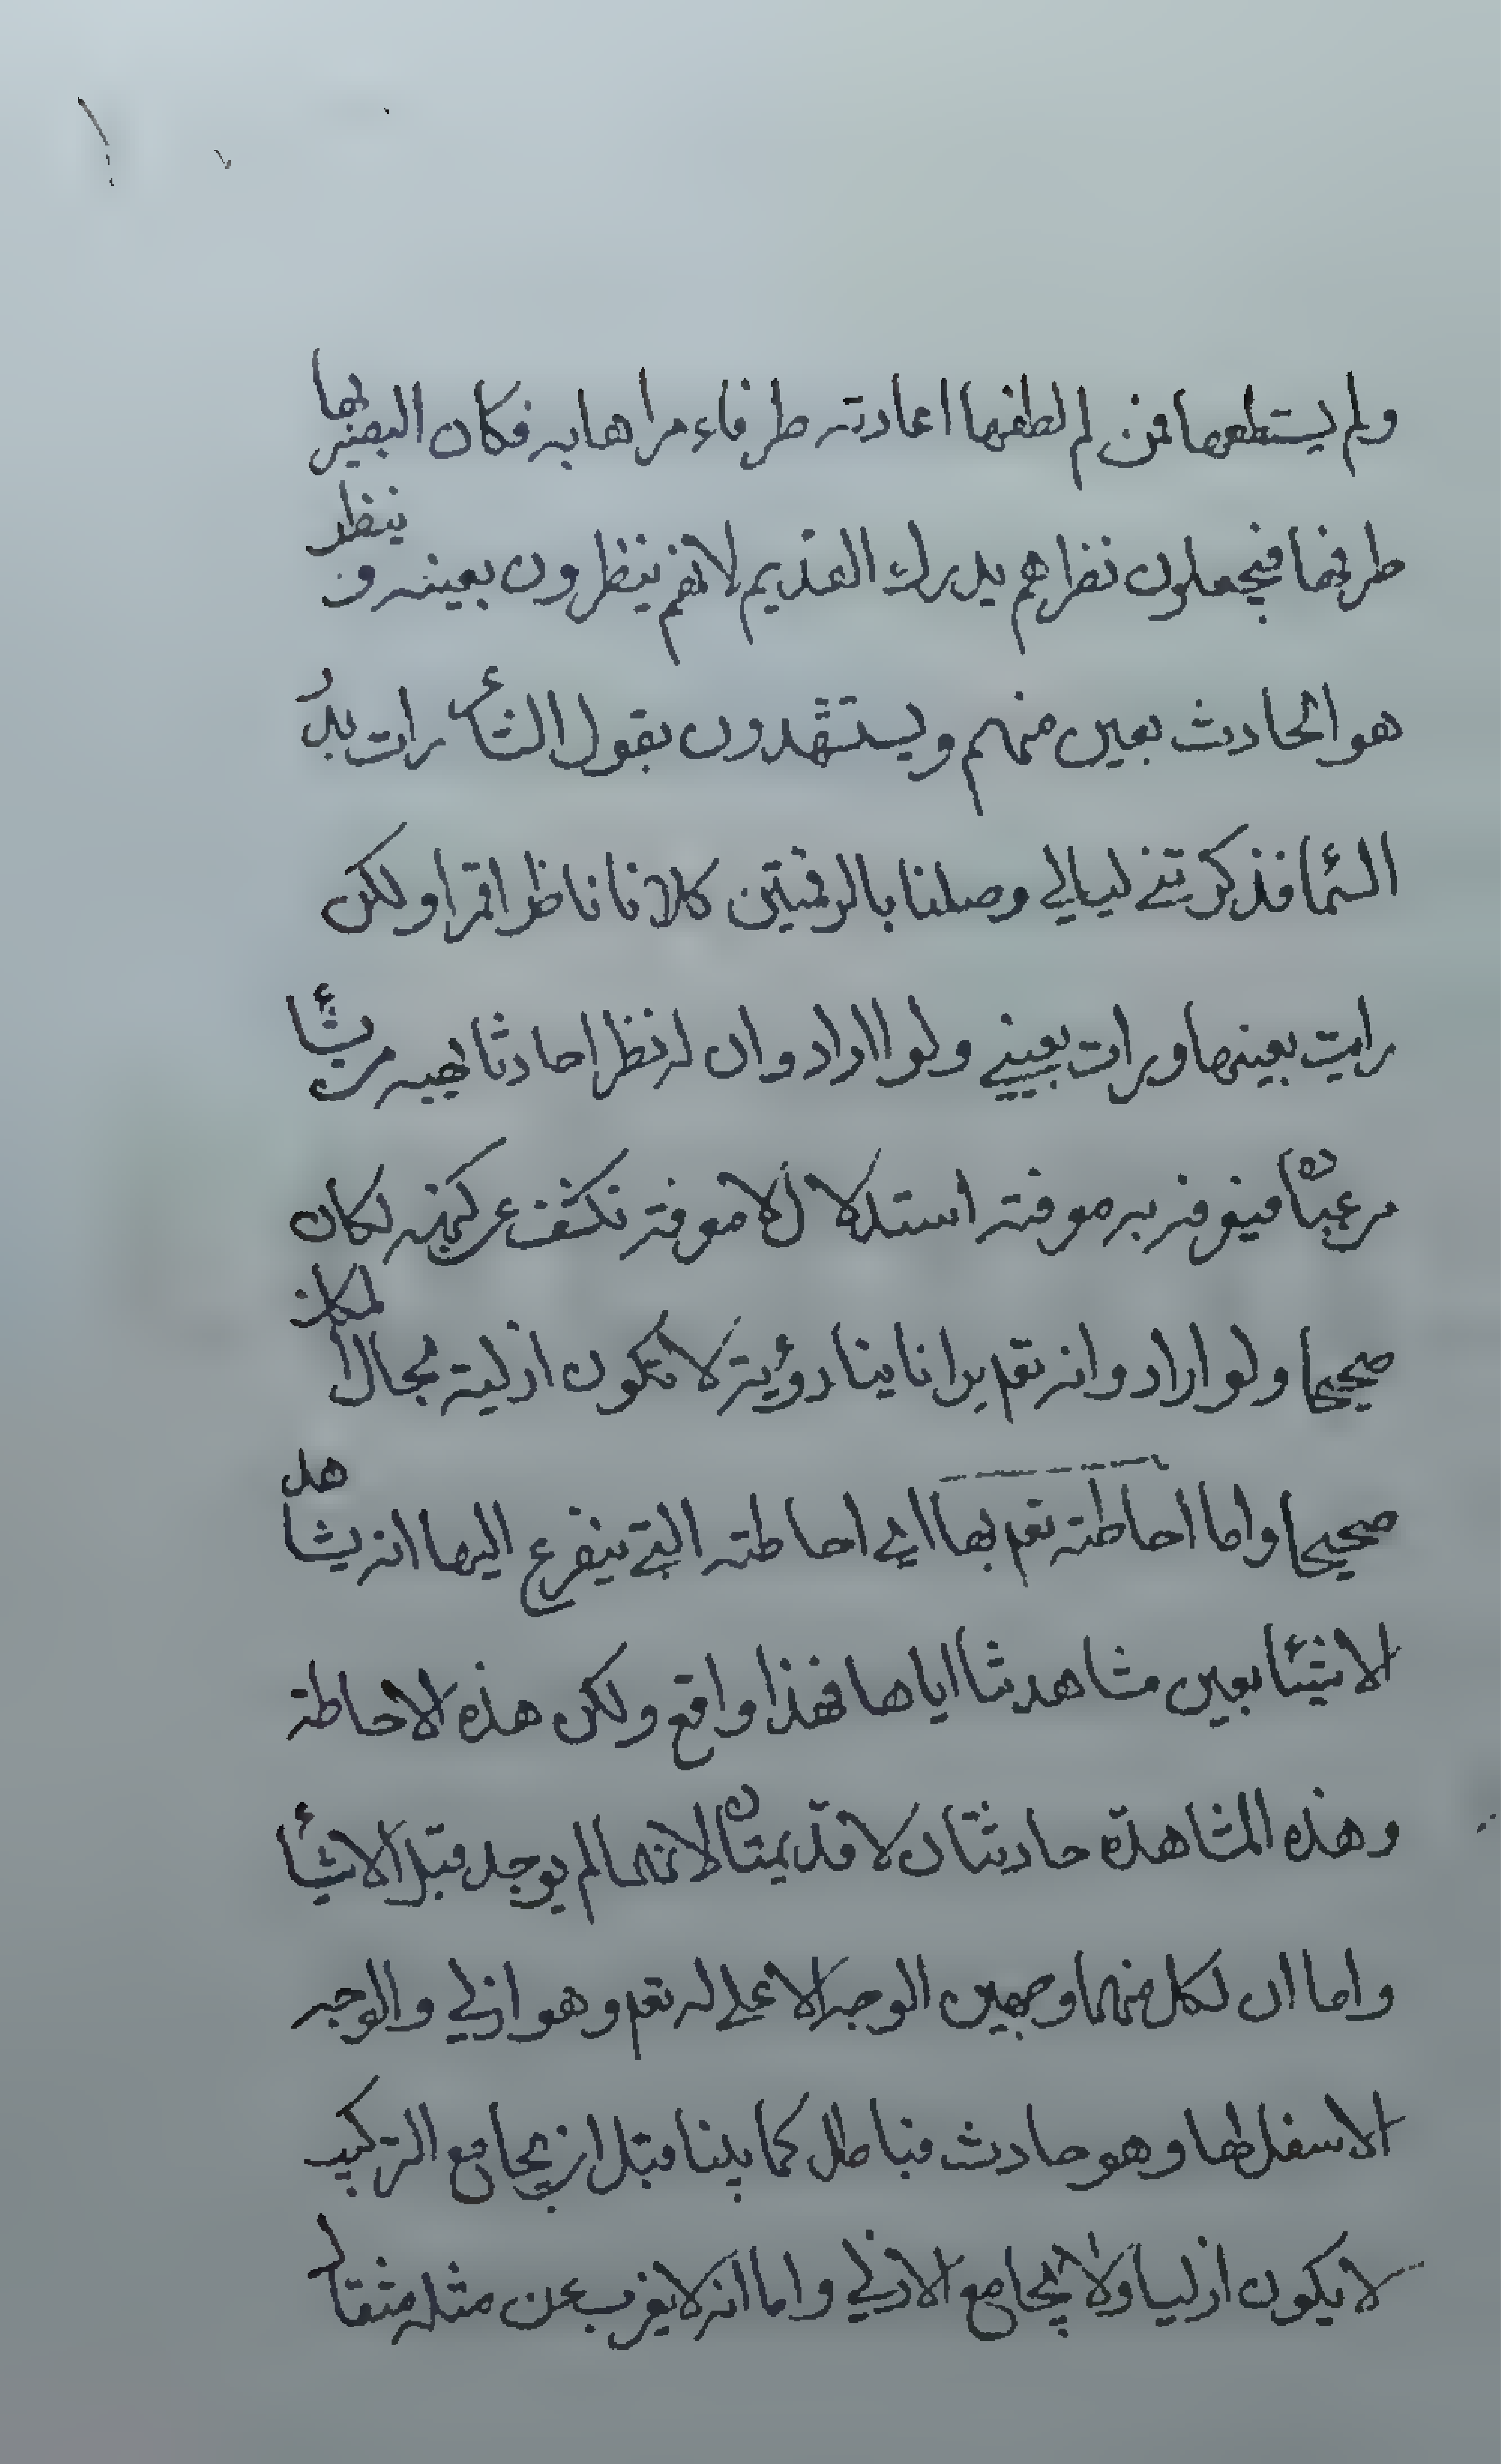 ولم يستطعها فمن لم لطفها اعادته طرفاء مراها به فكان البصير بها
طرفها فيجعلون نظراهم يدرك القديم لانهم ينظرون بعينه و ينظر
هو الحادث بعين منهم ويستشهدون بقول الشاعر رات بدر
السما فذكرتني ليالي وصلنا بالرقمتين كلانا ناظر اقمرا ولكن
رايت بعينها ورات بعيني ولو ارادوا ان له نظرا حادثا
به معرفته استدلال لا معرفته تكشف عن لكان
صحيحا ولو ارادوا انه تعم يرانا بنا رؤية لا تكون ازلية محالا لكان
صحيحا واما احاطته تعم بها اي احاطته التي يتفرع اليها انه يشاهد
الاشياء بعين مشاهدتنا اياها فهذا واقع ولكن هذه الاحاطة
وهذه المشاهدة حادثتان لا قديمتان لانهما لم يوجد قبل الاشيأ
واما ان لكل منهما وجهين الوجه الاعلى له تعم وهو ازلي والوجه
الاسفل لها وهو حادث فباطل كما بينا قبل ان يجامع التركيب
لا يكون ازليا ولا يجامع الازلي واما انه لا يغرب عن مثله مثقال